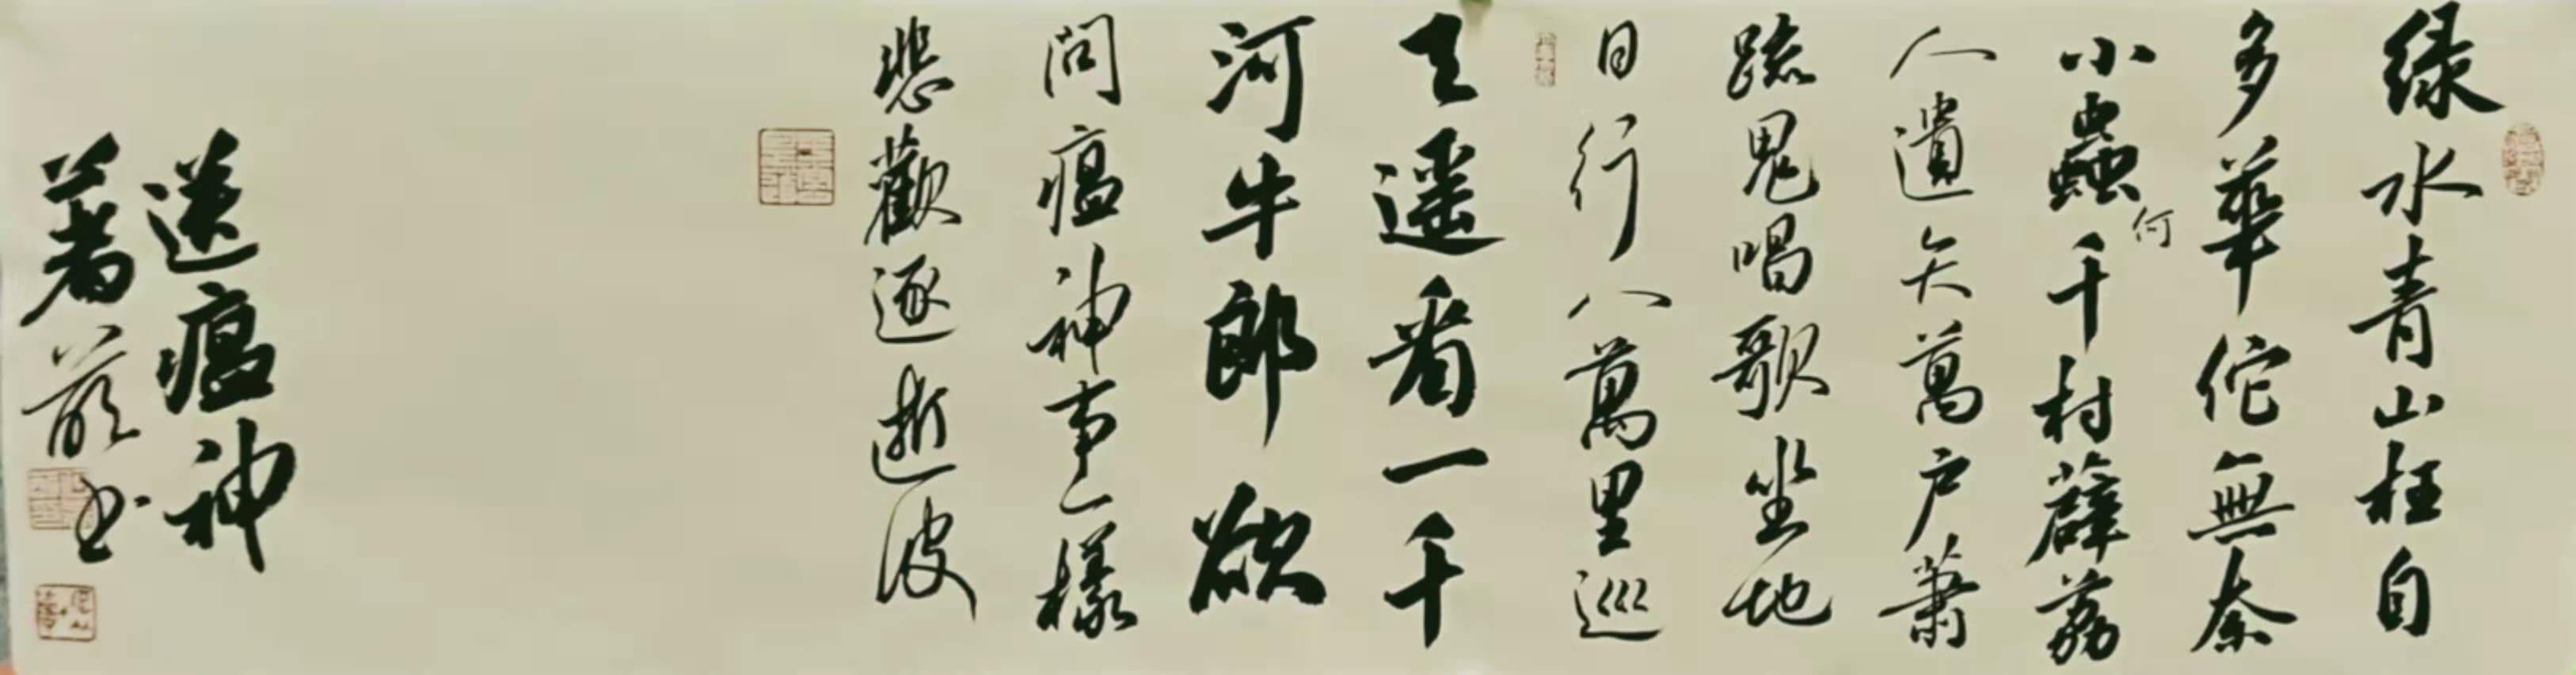 绿水青山枉自
多華佗無奈
小蟲千村薜荔
何
人遺矢萬户蕭
疏鬼唱歌坐地
日行八萬里巡
天遥看一千
河牛郎欲
問瘟神事一樣
悲歡逐逝波
送瘟神
著 书